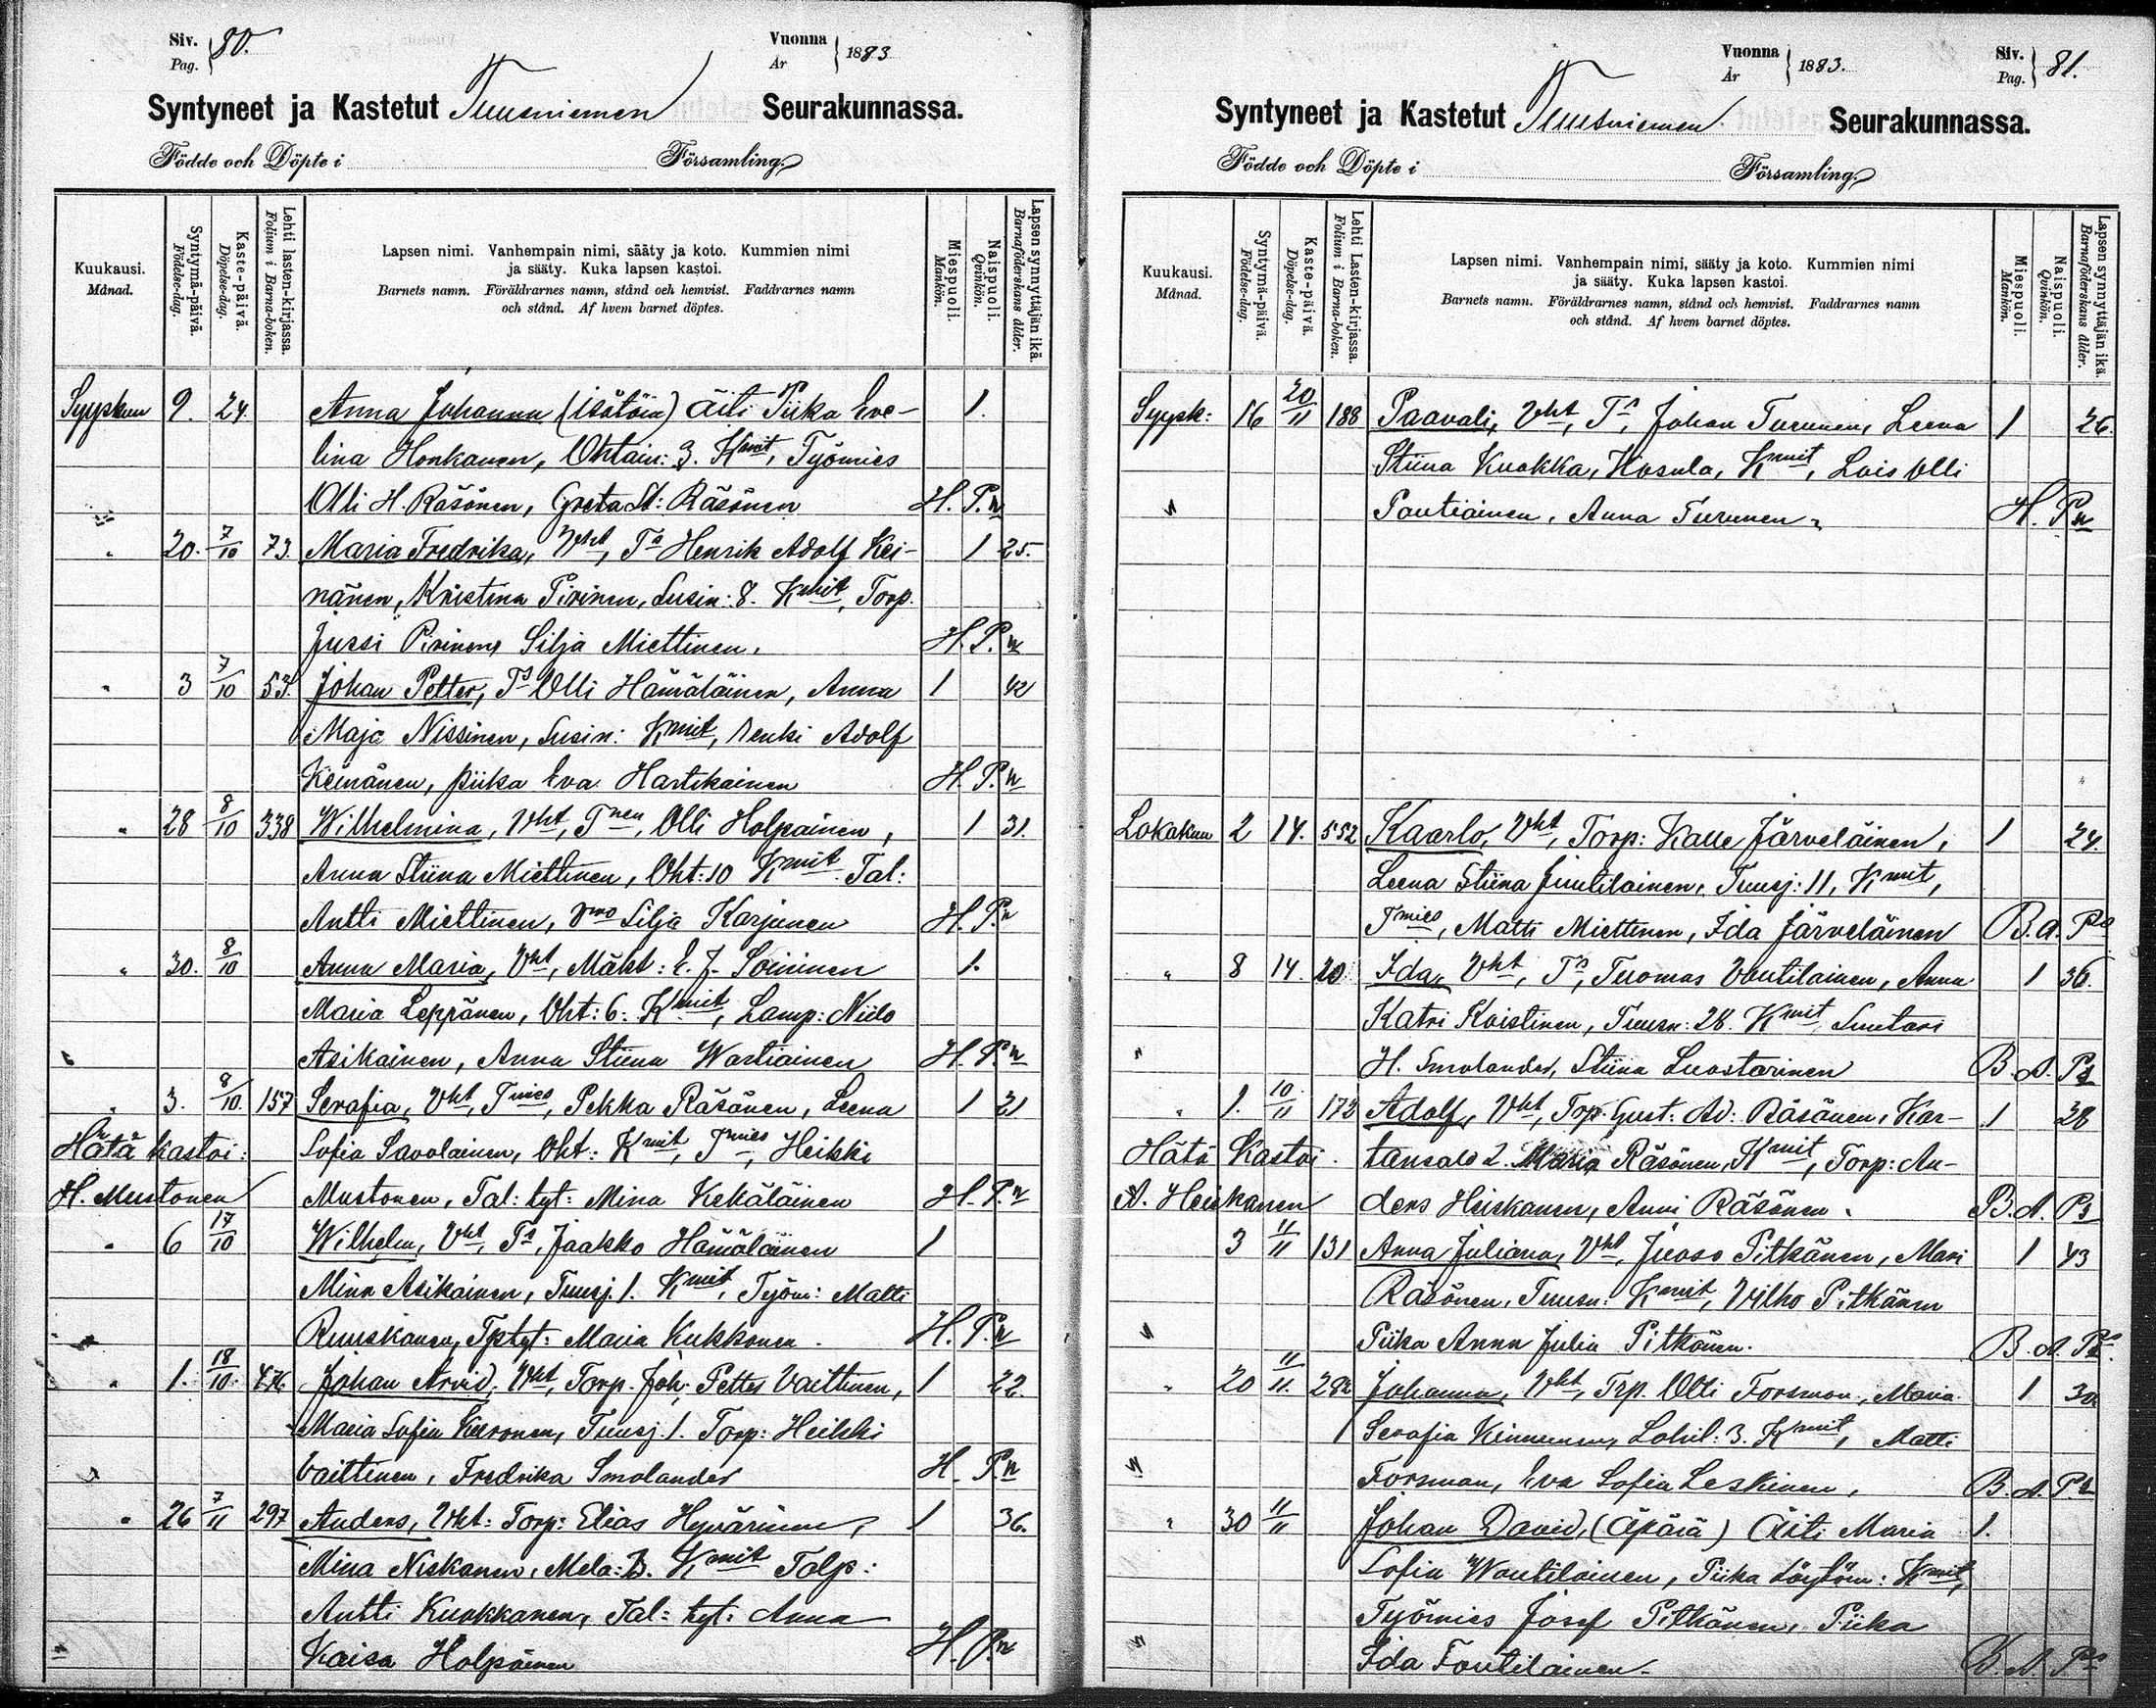 Siv. Pag. 80.
Vuonna År 1883
Syntyneet ja Kastetut Tuusniemen Seurakunnassa.
Födde och Döpte i Församling.
Kuukausi. Månad.
Syntymä-päivä. Födelse-dag.
Kaste-päivä. Döpelse-dag.
Lehti lasten-kirjassa. Folium i Barna-boken.
Lapsen nimi. Vanhempain nimi, sääty ja koto. Kummien nimi
ja sääty. Kuka lapsen kastoi.
Barnets namn. Föräldrarnes namn, stånd och hemvist. Faddrarnes namn
och stånd. Af hvem barnet döptes.
Miespuoli. Mankön.
Naispuoli. Qvinkön.
Lapsen synnyttäjän ikä. Barnaföderskans ålder.
Syyskuu 9. 24. Anna Johanna (isätöin) äiti Piika Eve- 1.
lina Honkanen, Ohtain: 3. Kmit, Työmies
Olli H. Räsönen, Greta St: Räsönen H. P.n
" 20. 7/10 73. Maria Fredrika, Vht, Ts Henrik Adolf Kei- 1 25.
nänen, Kristina Pirinen, Susin: 8. Kmit, Torp.
Jussi Pirinen, Silja Miettinen. H. P.n
" 3 7/10 53. Johan Petter, Ts Olli Hämäläinen, Anna 1 42
Maja Nissinen, Susin: Kmit, renki Adolf
Keinänen, piika Eva Hartikainen H. P.n
" 28 8/10 338 Wilhelmina, Vht, Tnen, Olli Holpainen, 1 31.
Anna Stiina Miettinen, Oht: 10 Kmit Tal:
Antti Miettinen, vmo Silja Karjunen H. P.n
" 30. 8/10 Anna Maria, Vht, Mäkt: E. J. Soininen 1.
Maria Leppänen, Oht: 6. Kmit, Lamp: Niilo
Asikainen, Anna Stiina Wartiainen H. P.n
" 3. 8/10. 157 Serafia, Vht, Tmies, Pekka Räsänen, Leena 1 21
Hätä kastoi: Sofia Savolainen, Oht: Kmit, Tmies, Heikki
H. Mustonen Mustonen, Tal: tyt: Mina Kekäläinen H. P.n
" 6 17/10 Wilhelm, Vht, Ts, Jaakko Hämäläinen 1
Mina Asikainen, Tuusj. 1. Kmit, Työm: Matti
Ruuskanen, Tptyt: Maria Kukkonen. H. P.n
" 1. 18/10. 476 Johan Arvid, Vht, Torp. Joh: Petter Vaittinen, 1 22.
Maria Sofia Kuronen, Tuusj. 1. Torp: Heikki
Vaittinen, Fredrika Smolander H. P.n
" 26 7/11 297 Anders, Vht: Torp: Elias Hyvärinen, 1 36.
Mina Niskanen, Mela: 3. Kmit Talp:
Antti Kuokkanen, Tal: tyt: Anna
Kaisa Holpainen H. P.n
Vuonna År 1883.
Siv. Pag. 81.
Syntyneet ja Kastetut Tuusniemen Seurakunnassa.
Födde och Döpte i Församling.
Kuukausi. Månad.
Syntymä-päivä. Födelse-dag.
Kaste-päivä. Döpelse-dag.
Lehti Lasten-kirjassa. Folium i Barna-boken.
Lapsen nimi. Vanhempain nimi, sääty ja koto. Kummien nimi
ja sääty. Kuka lapsen kastoi.
Barnets namn. Föräldrarnes namn, stånd och hemvist. Faddrarnes namn
och stånd. Af hvem barnet döptes.
Miespuoli. Mankön.
Naispuoli. Qvinkön.
Lapsen synnyttäjän ikä. Barnaföderskans ålder.
Syysk: 16 20/11 188 Paavali, Vht, Ts, Johan Turunen, Leena 1 26.
Stiina Kuokka, Kosula, Kmit, Lois Olli
Pantiainen, Anna Turunen H. Pn
Lokakuu 2 14. 552 Kaarlo, Vht, Torp: Kalle Järveläinen, 1 24.
Leena Stiina Juutilainen, Tuusj: 11, Kmit,
Tmies, Matti Miettinen, Ida Järveläinen B. A. Ps
" 8 14. 20. Ida, Vht, Ts, Tuomas Voutilainen, Anna 1 36.
Katri Koistinen, Tuusn: 28. Kmit, Suutari
H. Smolander, Stiina Luostarinen B. A. Ps
" 1. 10/11 172 Adolf, Vht, Torp. Gust: Ad: Räsänen, Kar- 1 28
Hätä Kastoi. tansalo 2. Maria Räsönen, Kmit, Torp: An-
A. Heiskanen ders Heiskanen, Anni Räsönen. B. A. Ps
3 11/11 131 Anna Juliana, Vht, Juoso Pitkänen, Mari 1 43
Räsönen, Tuusn: Kmit, Vilho Pitkänen
Piika Anna Julia Pitkänen. B. A. Ps.
" 20 11/11. 282 Johanna, Vht, Trp. Olli Forsman, Maria 1 30
Serafia Kinnunen, Lohil: 3. Kmit, Matti
Forsman, Eva Sofia Leskinen, B. A. Ps
" 30 11/11 Johan David, (Äpärä) Äiti Maria 1.
Sofia Woutilainen, Piika Löytöm: Kmit,
Työmies Josef Pitkänen, Piika
Ida Foutilainen. B. A. Ps